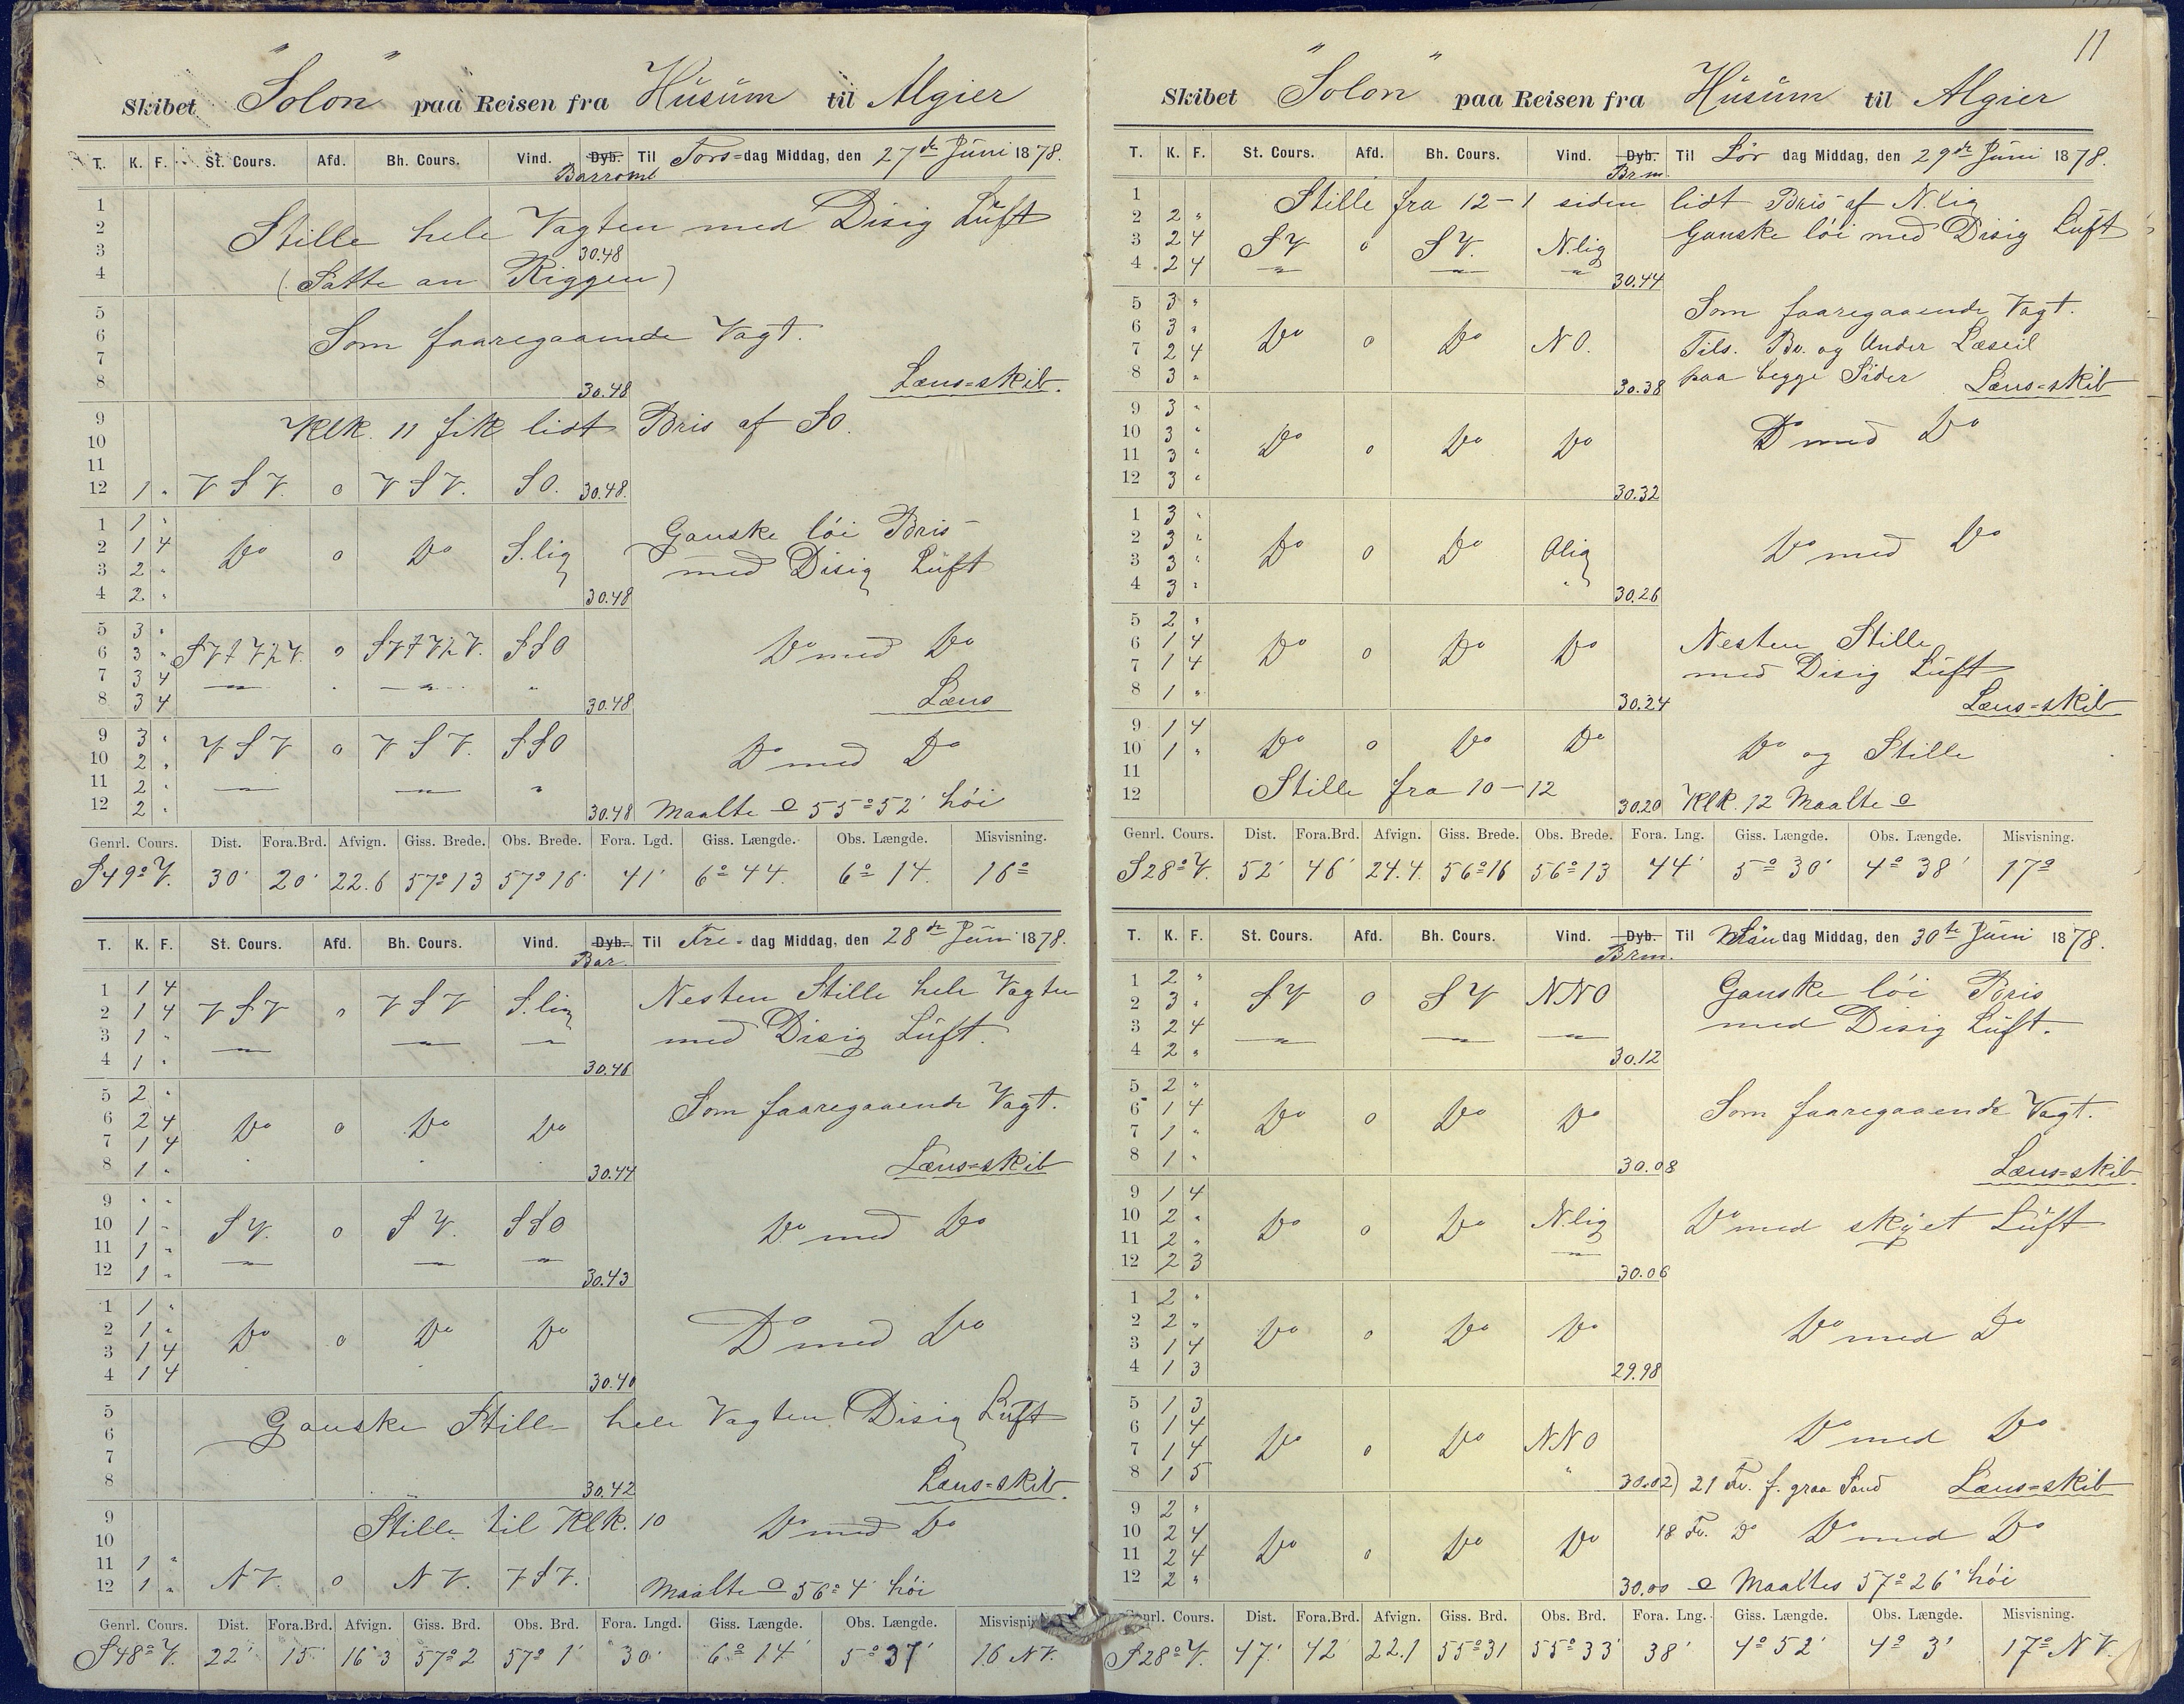 Skibet "Solon" paa Reisen fra Husum til Algier
T. K. F. St. Cours. Afd. Bh. Cours. Vind. Dyb. Til Tors=dag Middag, den 27de Juni 1878.
Barromt
1
2 Stille hele Vagten med Disig Luft
3 30.48
4 (Satte an Riggen)
5
6 Som faaregaaende Vagt.
7
8 30.48 Læns=skib.
9 Klk. 11 fik lidt Bris af SO.
10
11
12 1 " V S V. o V S V. SO. 30.48.
1 1 " Ganske löi Bris
2 1 4 Do o Do S.lig
3 2 " med Disig Luft
4 2 " 30.48
5 3 "
6 3 " SVtV½V. o SVtV½V. SSO Do med Do
7 3 4 — " — . — " — "
8 3 4 30.48 Læns
9 3 " V S V o V S V. SSO
10 2 " Do med Do
11 2 " — " — — " — "
12 2 " 30.48 Maalte o 55° 52' höi
Genrl. Cours. Dist. Fora.Brd. Afvign. Giss. Brede. Obs. Brede. Fora. Lgd. Giss. Længde. Obs. Længde. Misvisning.
S49°V. 30' 20' 22.6 57°13 57°16' 41' 6° 44. 6° 14. 16°
T. K. F. St. Cours. Afd. Bh. Cours. Vind. Dyb. Til Fre=dag Middag, den 28de Juni 1878.
Bar.
1 1 4 Nesten Stille hele Vagten
2 1 4 V S V " V S V S.lig
3 1 " — " — — " — — " — med Disig Luft.
4 1 " 30.46
5 2 "
6 2 4 Do o Do Do Som faaregaaende Vagt.
7 1 4
8 1 " 30.44 Læns=skib
9 " "
10 1 " S V. o S V. SSO Do med Do
11 1 " — " — — " — — " —
12 1 " 30.43
1 1 "
2 1 " Do o Do Do Do med Do
3 1 4
4 1 4 30.40
5 Ganske Stille hele Vagten Disig Luft
6
7
8 30.42 Læns=skib.
9 Stille til Klk. 10 Do med Do
10
11 1 "
12 1 " N V. o N V. V S V. Maalte o 56° 4' höi
Genrl. Cours. Dist. Fora.Brd. Afvign. Giss. Brd. Obs. Brd. Fora. Lngd. Giss. Længde. Obs. Længde. Misvisning
S48°V. 22' 15' 16 3 57°2 57° 1' 30' 6° 14' 5° 37' 16 NV.
11
Skibet "Solon" paa Reisen fra Husum til Algier
T. K. F. St. Cours. Afd. Bh. Cours. Vind. Dyb. Til Lör dag Middag, den 29de Juni 1878.
Brm.
1 Stille fra 12–1 siden lidt Bris af N.lig
2 2 "
3 2 4 S V o S V. N.lig Ganske löi med Disig Luft
4 2 4 — " — — " — — " — 30.44
5 3 " Som faaregaaende Vagt.
6 3 " Do o Do NO.
7 2 4 Tils. Bv. og Under Læseil
8 3 " 30.38 paa begge Sider Læns=skib
9 3 "
10 3 " Do o Do Do Do med Do
11 3 "
12 3 " 30.32
1 3 "
2 3 " Do o Do Olig Do med Do
3 3 "
4 3 " " 30.26
5 2 "
6 1 4 Do o Do Do Nesten Stille
7 1 4 med Disig Luft
8 1 " 30.24 Læns=skib
9 1 4
10 1 " Do o Do Do Do og Stille
11
12 Stille fra 10–12 30.20 Klk. 12 Maalte o
Genrl. Cours. Dist. Fora.Brd. Afvign. Giss. Brede. Obs. Brede. Fora. Lng. Giss. Længde. Obs. Længde. Misvisning.
S28°V. 52' 46' 24.4. 56°16 56°13 44' 5° 30' 4° 38' 17°
T. K. F. St. Cours. Afd. Bh. Cours. Vind. Dyb. Til Sön dag Middag, den 30te Juni 1878.
Brm.
1 2 " Ganske löi Bris
2 3 " S V o S V NNO
3 2 4 — " — — " — — " — med Disig Luft.
4 2 " 30.12
5 2 "
6 1 4 Do o Do Do Som faaregaaende Vagt.
7 1 "
8 1 " 30.08 Læns=skib.
9 1 4
10 2 " Do o Do N.lig Do med skyet Luft
11 2 " — " —
12 2 3 30.06
1 2 "
2 2 " Do o Do Do Do med Do
3 1 4
4 1 3 29.98
5 1 3
6 1 4 Do o Do NNO Do med Do
7 1 4
8 1 5 " 30.02) 21 Fv. f. graa Sand Læns=skib
9 2 "
10 2 4 Do o Do Do 18 Fv. Do Do med Do
11 2 4
12 2 " 30.00 o Maaltes 57° 26' höi
Genrl. Cours. Dist. Fora.Brd. Afvign. Giss. Brd. Obs. Brd. Fora. Lng. Giss. Længde. Obs. Længde. Misvisning.
S28°V. 47' 42' 22.1 55°31 55°33' 38' 4° 52' 4° 3' 17° NV.